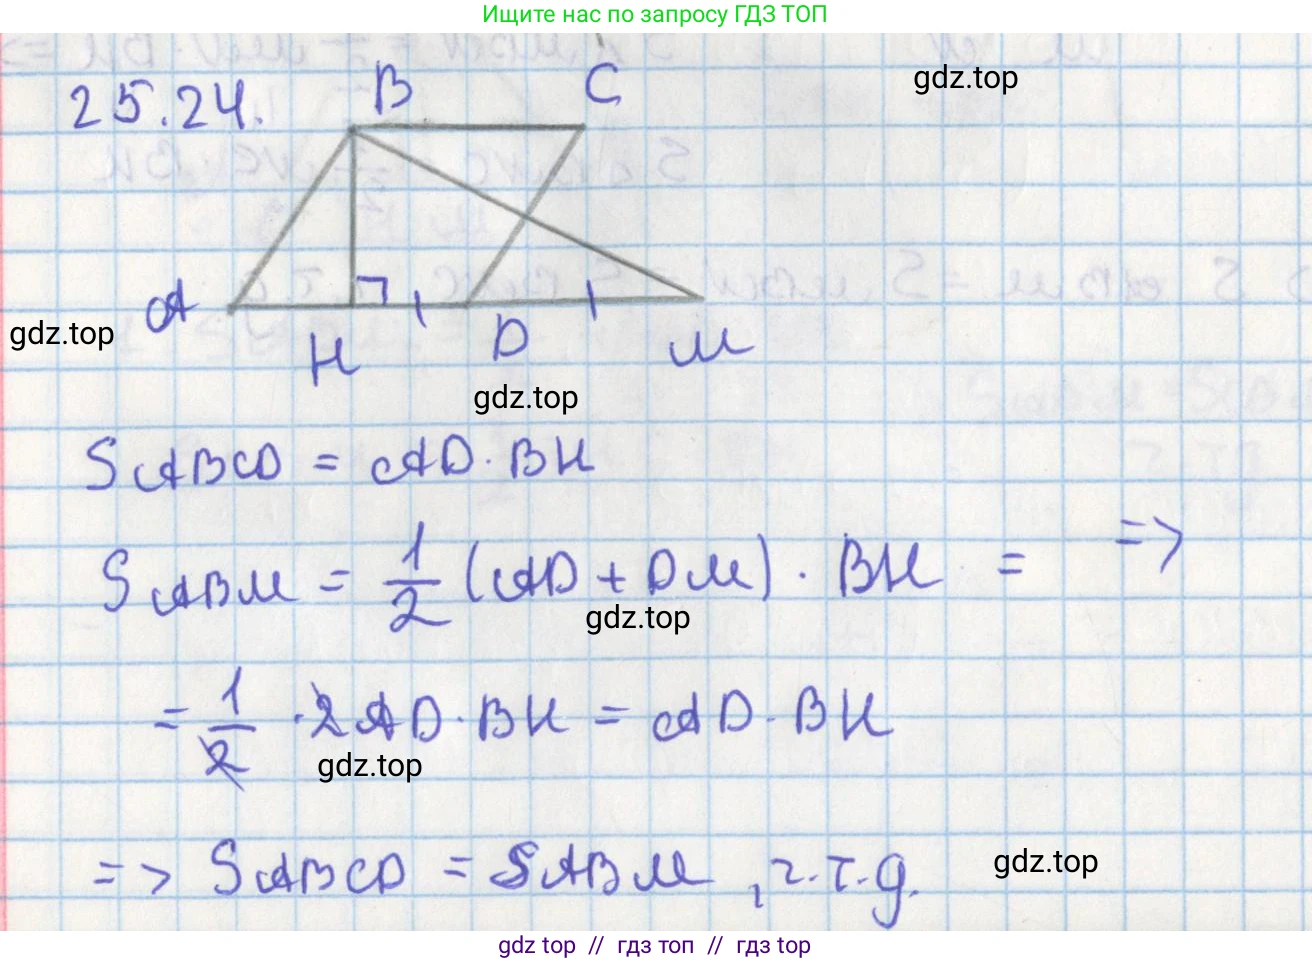 Ищите нас по запросу ГДЗ ТОП
25.24.
B C
gdz.top
A H D M
gdz.top
gdz.top
S ABCD = AD · BH
S ABM = 1/2 (AD + DM) · BH = =>
gdz.top
= 1/2 · 2AD · BH = AD · BH
gdz.top
=> S ABCD = S ABM, ч.т.д.
gdz.top
gdz top // гдз топ // gdz top